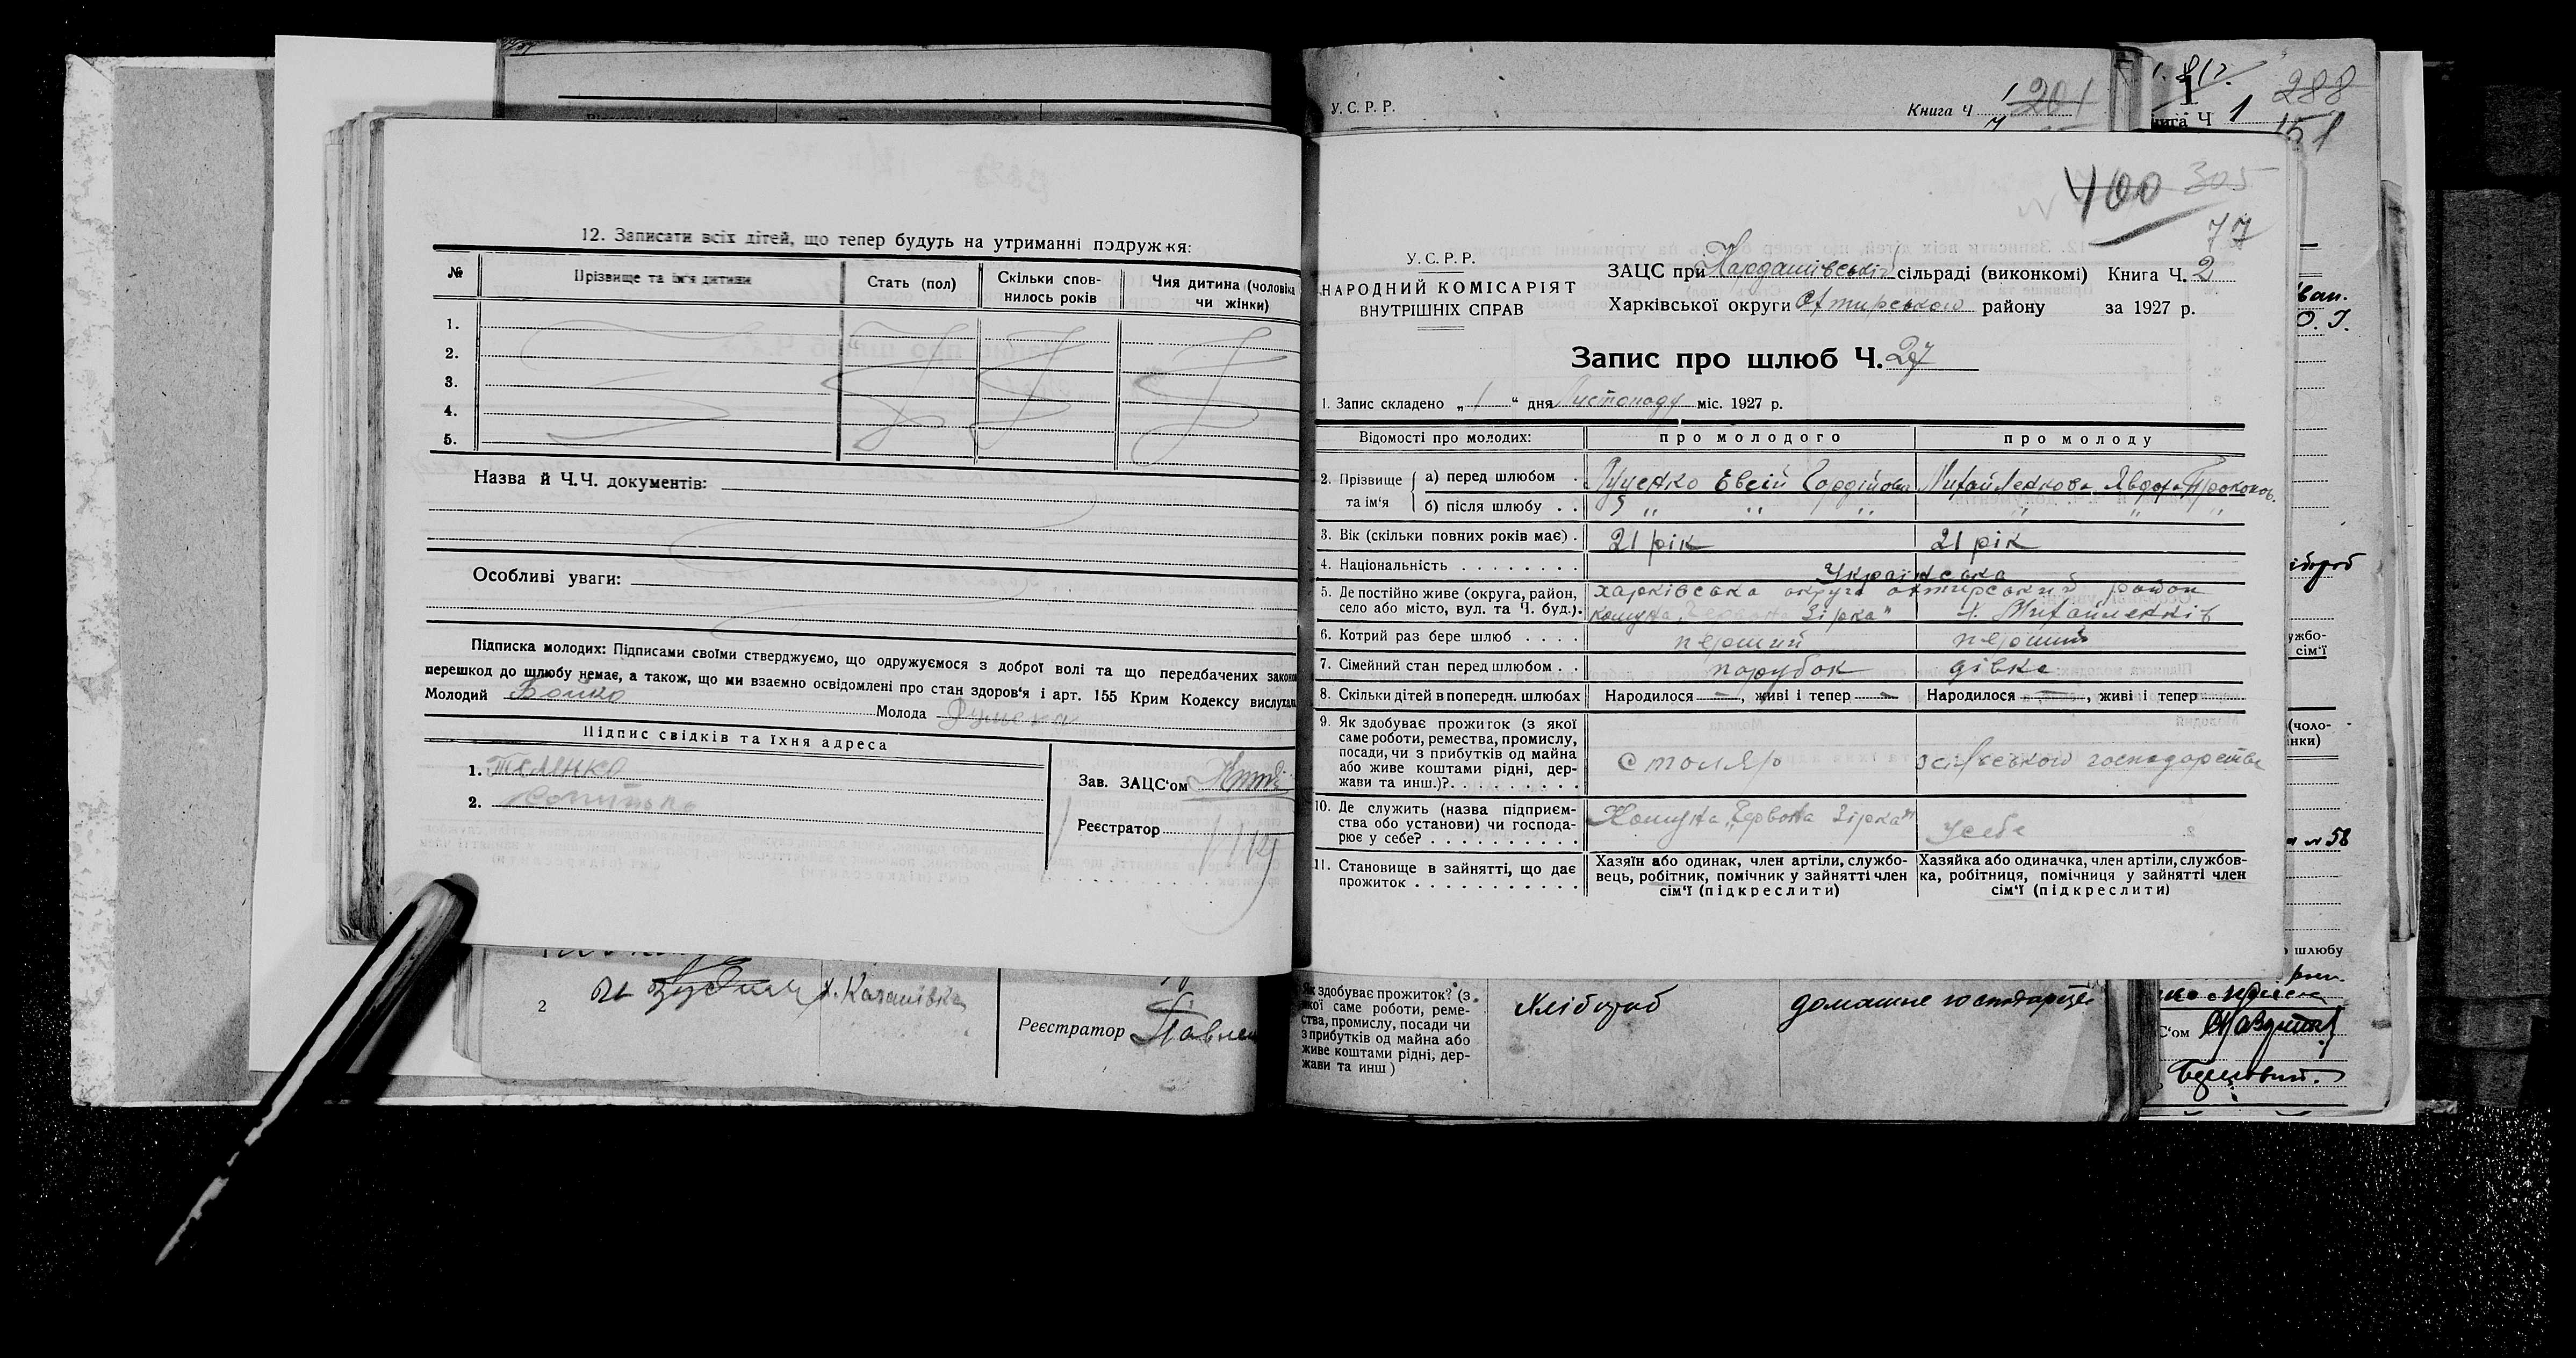 12. Записати всіх дітей, що тепер будуть на утриманні подружжя:
№ Прізвище та ім'я дитини Стать (пол) Скільки спов-нилось років Чия дитина (чоловіка чи жінки)
1.
2.
3.
4.
5.
Назва й Ч.Ч. документів:
Особливі уваги:
Підписка молодих: Підписами своїми стверджуємо, що одружуємося з доброї волі та що передбачених законом
перешкод до шлюбу немає, а також, що ми взаємно освідомлені про стан здоров'я і арт. 155 Крим Кодексу вислухали
Молодий Бойко Молода
Підпис свідків та їхня адреса
1.
2.
Зав. ЗАЦС'ом
Реєстратор
2 х. Каташівка
Реєстратор Павлен
У. С. Р. Р. Книга Ч 1 201
7
1
288
нига Ч 1
151
400 305
77
У. С. Р. Р.
НАРОДНИЙ КОМІСАРІЯТ
ВНУТРІШНІХ СПРАВ
ЗАЦС при Кардашівській сільраді (виконкомі) Книга Ч. 2
Харківської округи Охтирського району за 1927 р.
Запис про шлюб Ч. 27
1. Запис складено „ 1 “ дня Листопаду міс. 1927 р.
Відомості про молодих: про молодого про молоду
2. Прізвище та ім'я а) перед шлюбом . Рученко Евсій Гордійови Михайленкова Явдоха Прокопов.
б) після шлюбу . . „ „ „ „ „ „
3. Вік (скільки повних років має) . 21 рік 21 рік
4. Національність . . . . . . . . Українська
5. Де постійно живе (округа, район, Харківська округа охтирський район
село або місто, вул. та Ч. буд.). комуна „Червона Зірка" х. Михайленків
6. Котрий раз бере шлюб . . . . перший перший
7. Сімейний стан перед шлюбом . . парубок дівка
8. Скільки дітей в попередн. шлюбах Народилося —, живі і тепер — Народилося —, живі і тепер
9. Як здобуває прожиток (з якої
саме роботи, ремества, промислу,
посади, чи з прибутків од майна
або живе коштами рідні, дер- столяр з сільського господарства
жави та инш.)?. . . . . . . . . .
10. Де служить (назва підприєм- Комуна „Червона Зірка"
ства обо установи) чи господа- усебе
рює у себе? . . . . . . . . . . .
11. Становище в зайнятті, що дає прожиток . . . . . . . . . . . .
Хазяїн або одинак, член артіли, службо-
вець, робітник, помічник у зайнятті член
сім'ї (підкреслити)
Хазяйка або одиначка, член артіли, службов-
ка, робітниця, помічниця у зайнятті член
сім'ї (підкреслити)
Як здобуває прожиток? (з
якої саме роботи, реме-
ства, промислу, посади чи
з прибутків од майна або
живе коштами рідні, дер-
жави та инш)
хлібороб домашнє господарство
ужбо-
сім'ї
(чоло-
інки)
№ 58
шлюбу
С'ом